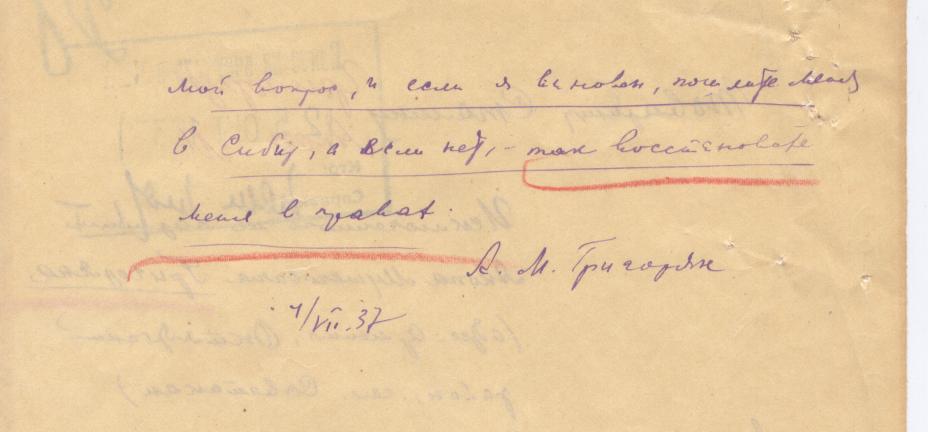 мой вопрос, и если я виновен, пошлите меня
в Сибир, а если нет, – так восстановите
меня в правах.
А. М. Григорян
4/VII.37